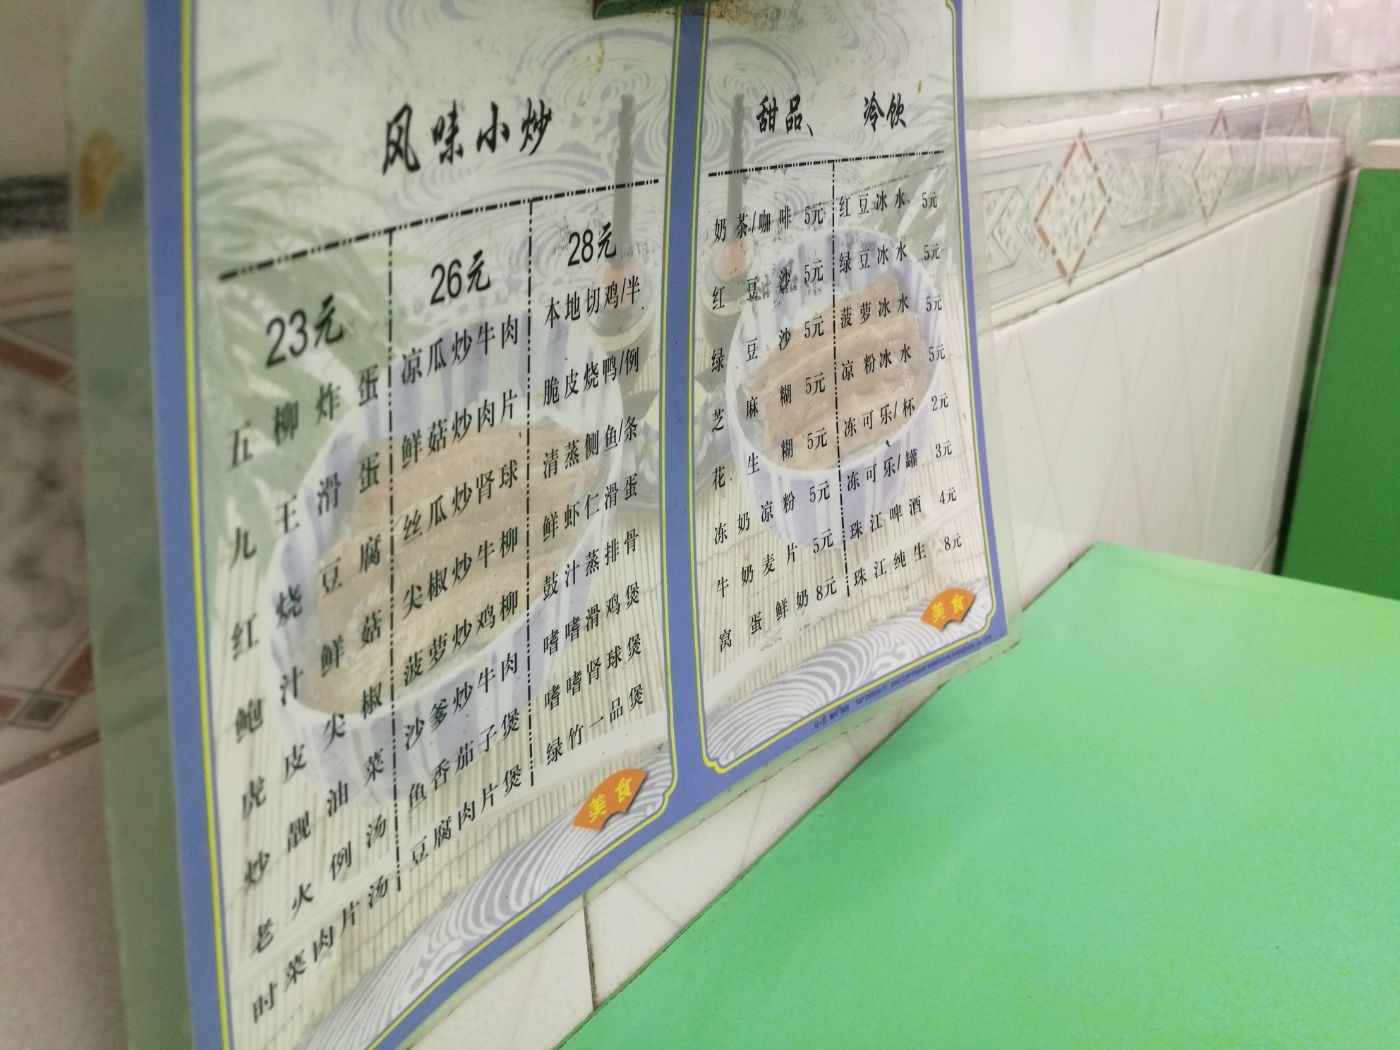 风味小炒
23元
五柳炸蛋
九王滑蛋
红烧豆腐
鲍汁鲜菇
虎皮尖椒
炒靓油菜
老火例汤
时菜肉片汤
26元
凉瓜炒牛肉
鲜菇炒肉片
丝瓜炒肾球
尖椒炒牛柳
菠萝炒鸡柳
沙爹炒牛肉
鱼香茄子煲
豆腐肉片煲
28元
本地切鸡/半
脆皮烧鸭/例
清蒸侧鱼/条
鲜虾仁滑蛋
鼓汁蒸排骨
嗜嗜滑鸡煲
嗜嗜肾球煲
绿竹一品煲
美食
甜品、 冷饮
奶茶/咖啡 5元
红豆沙 5元
绿豆沙 5元
芝麻糊 5元
花生糊 5元
冻奶凉粉 5元
牛奶麦片 5元
窝蛋鲜奶 8元
红豆冰水 5元
绿豆冰水 5元
菠萝冰水 5元
凉粉冰水 5元
冻可乐/杯 2元
冻可乐/罐 3元
珠江啤酒 4元
珠江纯生 8元
美食